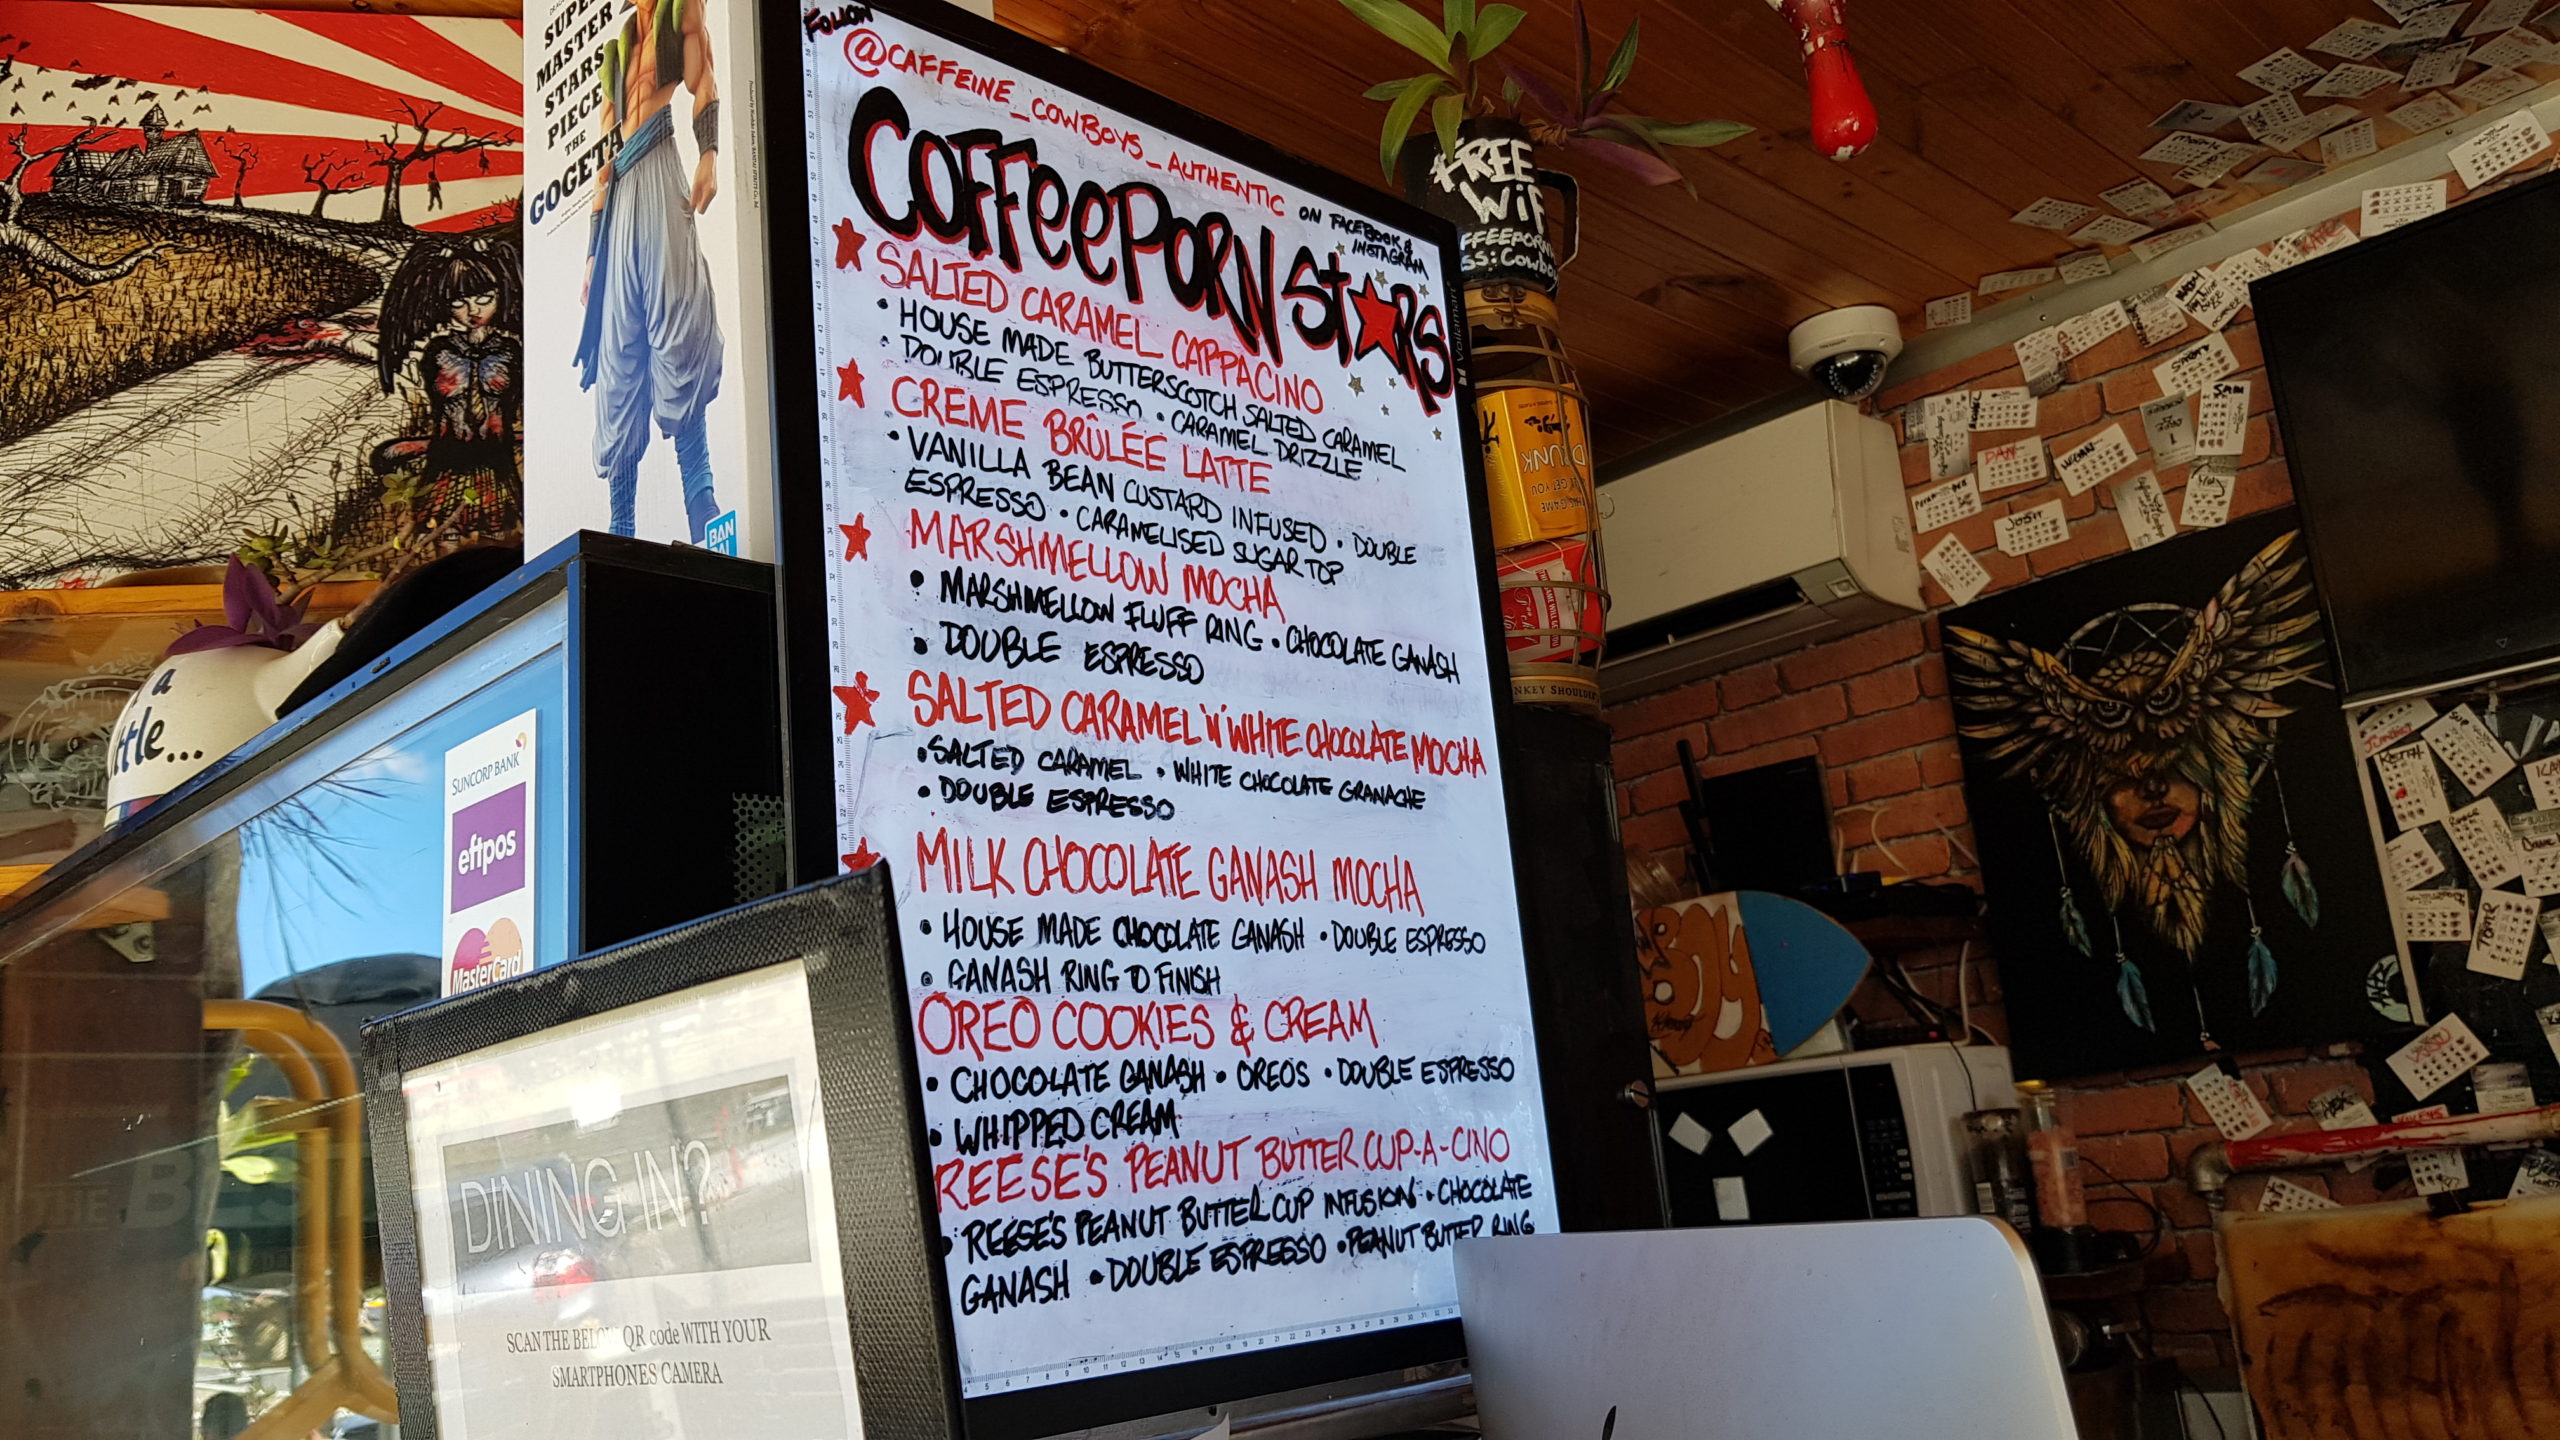 FOLLOW
@CAFFEINE_COWBOYS_AUTHENTIC ON FACEBOOK &
INSTAGRAM
COFFEEPORN STARS
SALTED CARAMEL CAPPACINO
• HOUSE MADE BUTTERSCOTCH SALTED CARAMEL
• DOUBLE ESPRESSO • CARAMEL DRIZZLE
CREME BRÛLÉE LATTE
• VANILLA BEAN CUSTARD INFUSED • DOUBLE
ESPRESSO • CARAMELISED SUGAR TOP
MARSHMELLOW MOCHA
• MARSHMELLOW FLUFF RING • CHOCOLATE GANASH
• DOUBLE ESPRESSO
SALTED CARAMEL 'N' WHITE CHOCOLATE MOCHA
• SALTED CARAMEL • WHITE CHOCOLATE GRANACHE
• DOUBLE ESPRESSO
MILK CHOCOLATE GANASH MOCHA
• HOUSE MADE CHOCOLATE GANASH • DOUBLE ESPRESSO
• GANASH RING TO FINISH
OREO COOKIES & CREAM
• CHOCOLATE GANASH • OREOS • DOUBLE ESPRESSO
• WHIPPED CREAM
REESE'S PEANUT BUTTER CUP-A-CINO
• REESE'S PEANUT BUTTER CUP INFUSION • CHOCOLATE
GANASH • DOUBLE ESPRESSO • PEANUT BUTTER RING
SUPER
MASTER
STARS
PIECE
THE
GOGETA
BAN
DAI
a
ttle...
SUNCORP BANK
eftpos
MasterCard
DINING IN?
SCAN THE BELOW QR code WITH YOUR
SMARTPHONES CAMERA
FREE
WiF
FFEEPORN
SS: Cowbo
NKEY SHOULDE
DAN
JOSH
SAM
KEITH
TONE